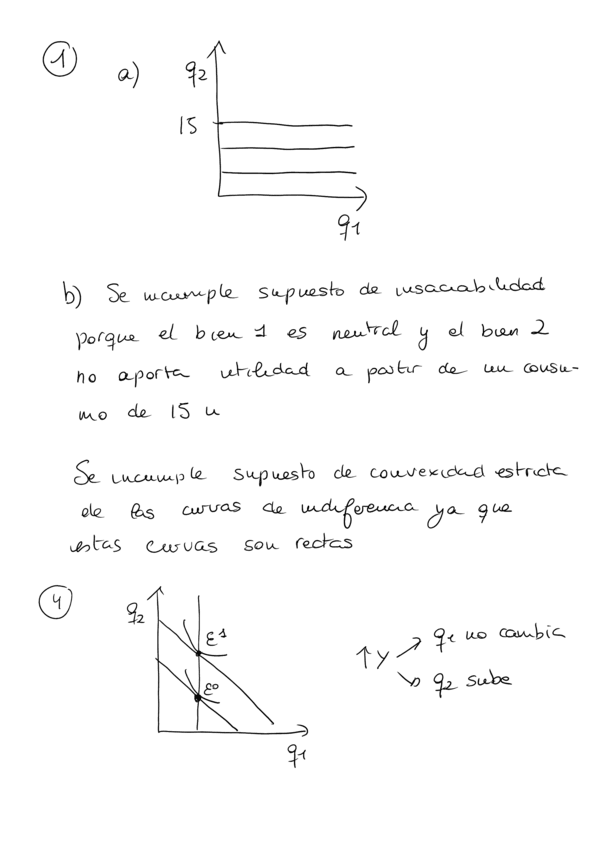 1
a) q2
15
q1
b) Se incumple supuesto de insaciabilidad
porque el bien 1 es neutral y el bien 2
no aporta utilidad a partir de un consu-
mo de 15 u
Se incumple supuesto de convexidad estricta
de las curvas de indiferencia ya que
estas curvas son rectas
4
q2
E¹
E⁰
q1
↑Y
q1 no cambia
q2 sube